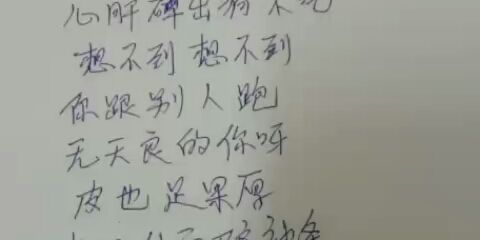 心肝碑出狗不吃
想不到想不到
你跟别人跑
无天良的你呀
皮也足果厚